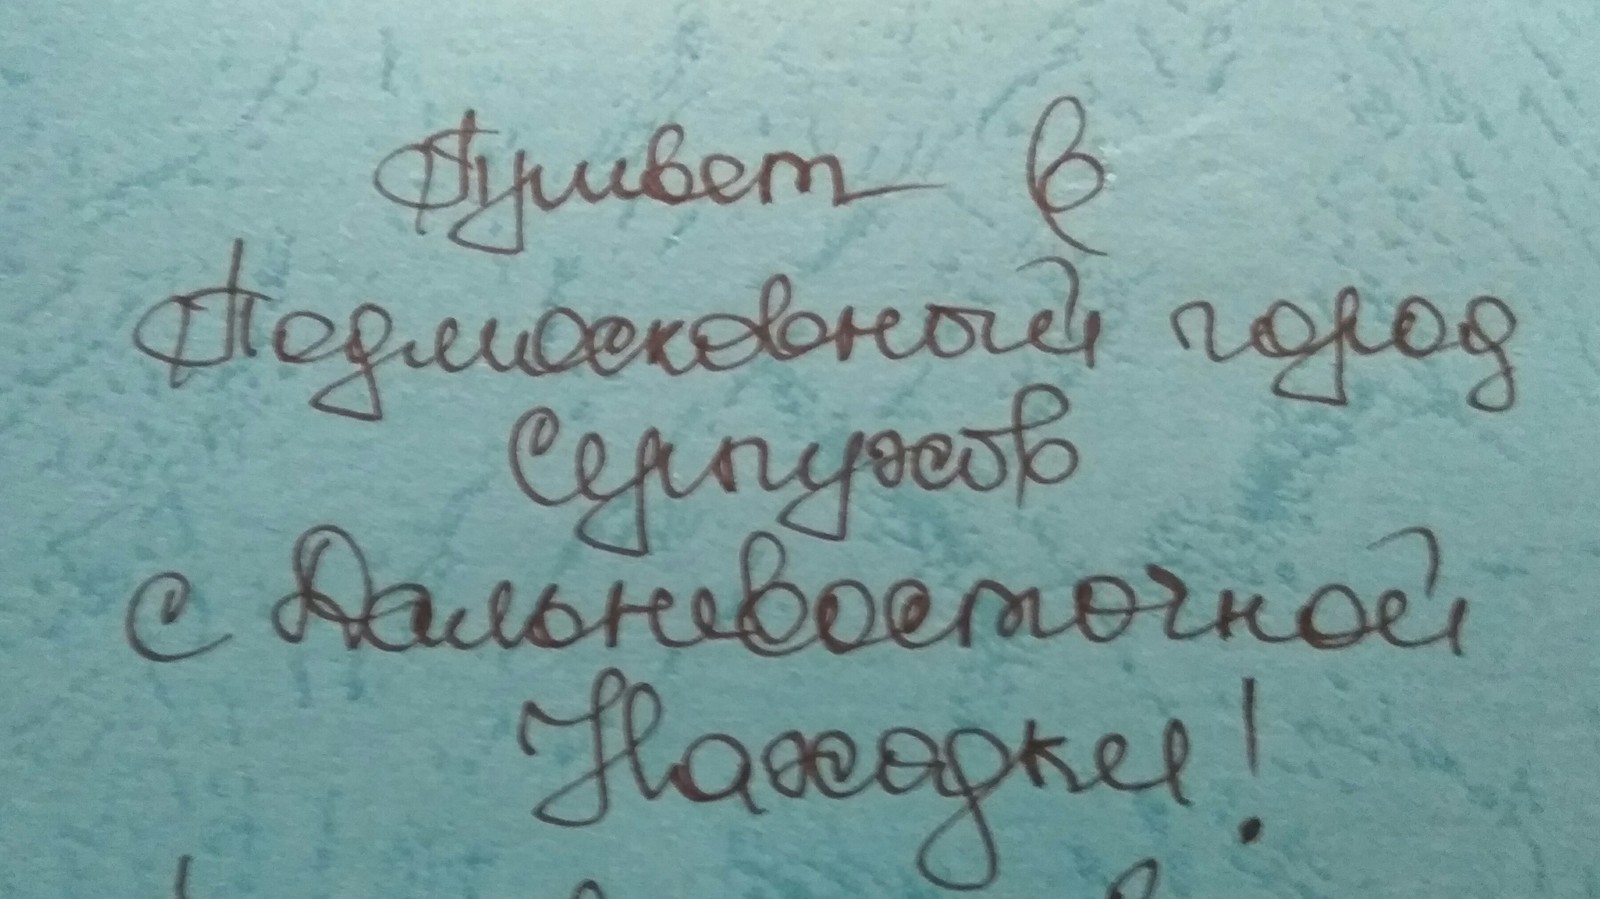 Привет в
Подмосковный город
Серпухов
с Дальневосточной
Находки!